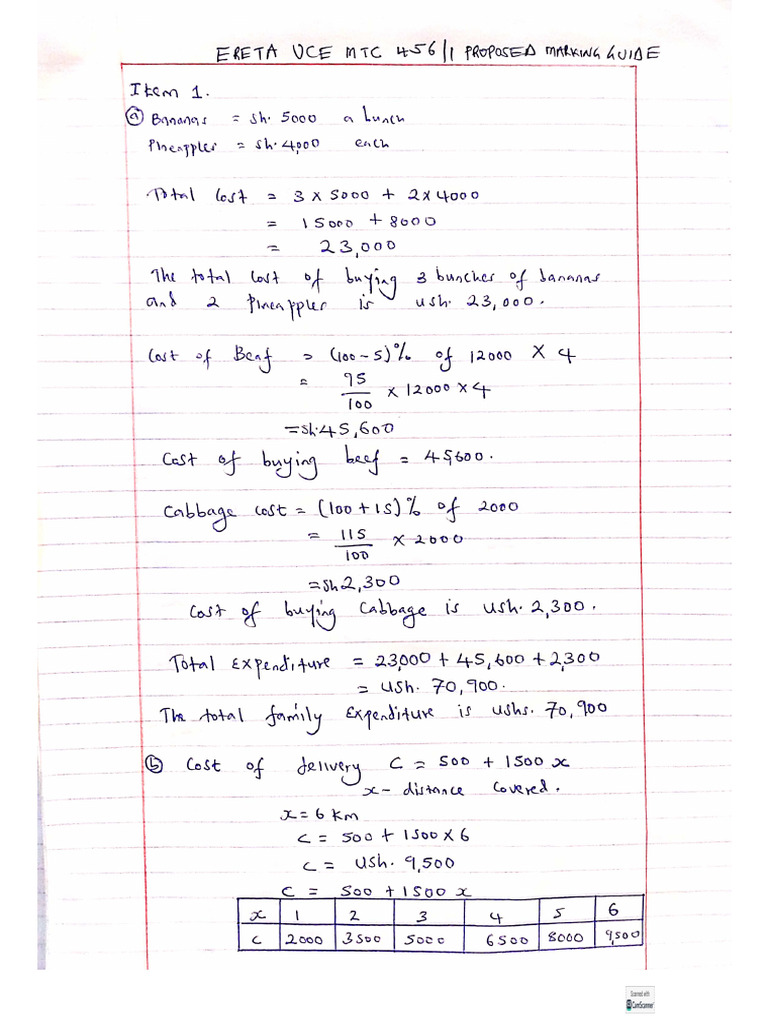 ERETA UCE MTC 456/1 PROPOSED MARKING GUIDE
Item 1.
(a) Bananas = sh. 5000 a bunch
Pineapples = sh. 4,000 each
Total Cost = 3 x 5000 + 2 x 4000
= 15000 + 8000
= 23,000
The total cost of buying 3 bunches of bananas
and 2 pineapples is ush. 23,000.
Cost of Beaf = (100 - 5)% of 12000 x 4
= 95/100 x 12000 x 4
= sh. 45,600
Cost of buying beef = 45,600.
Cabbage cost = (100 + 15)% of 2000
= 115/100 x 2000
= sh 2,300
Cost of buying Cabbage is ush. 2,300.
Total expenditure = 23,000 + 45,600 + 2,300
= ush. 70,900.
The total family expenditure is ushs. 70,900
(b) Cost of delivery C = 500 + 1500 x
x - distance covered.
x = 6 km
C = 500 + 1500 x 6
C = Ush. 9,500
C = 500 + 1500 x
x 1 2 3 4 5 6
C 2000 3500 5000 6500 8000 9,500
Scanned with
CamScanner